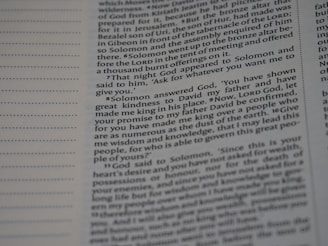 which Moses the
of God from
prepared for it, because he had pitched
for it in Jerusalem. But the bronze altar that
Bezalel son of Uri, the son of Hur, had made was
in Gibeon in front of the tabernacle of the LORD;
so Solomon and the assembly enquired of him
there. Solomon went up to the bronze altar be-
fore the LORD in the tent of meeting and offered
a thousand burnt offerings on it.
7 That night God appeared to Solomon and
said to him, 'Ask for whatever you want me to
give you.'
8 Solomon answered God, 'You have shown
great kindness to David my father and have
made me king in his place. 9 Now, LORD God, let
your promise to my father David be confirmed,
for you have made me king over a people who
are as numerous as the dust of the earth. 10 Give
me wisdom and knowledge, that I may lead this
people, for who is able to govern this great peo-
ple of yours?'
11 God said to Solomon, 'Since this is your
heart's desire and you have not asked for wealth,
possessions or honour, nor for the death of
your enemies, and since you have not asked for a
long life but for wisdom and knowledge to govern
my people over whom I have made you king,
12 therefore wisdom and knowledge
you. And I will also give you